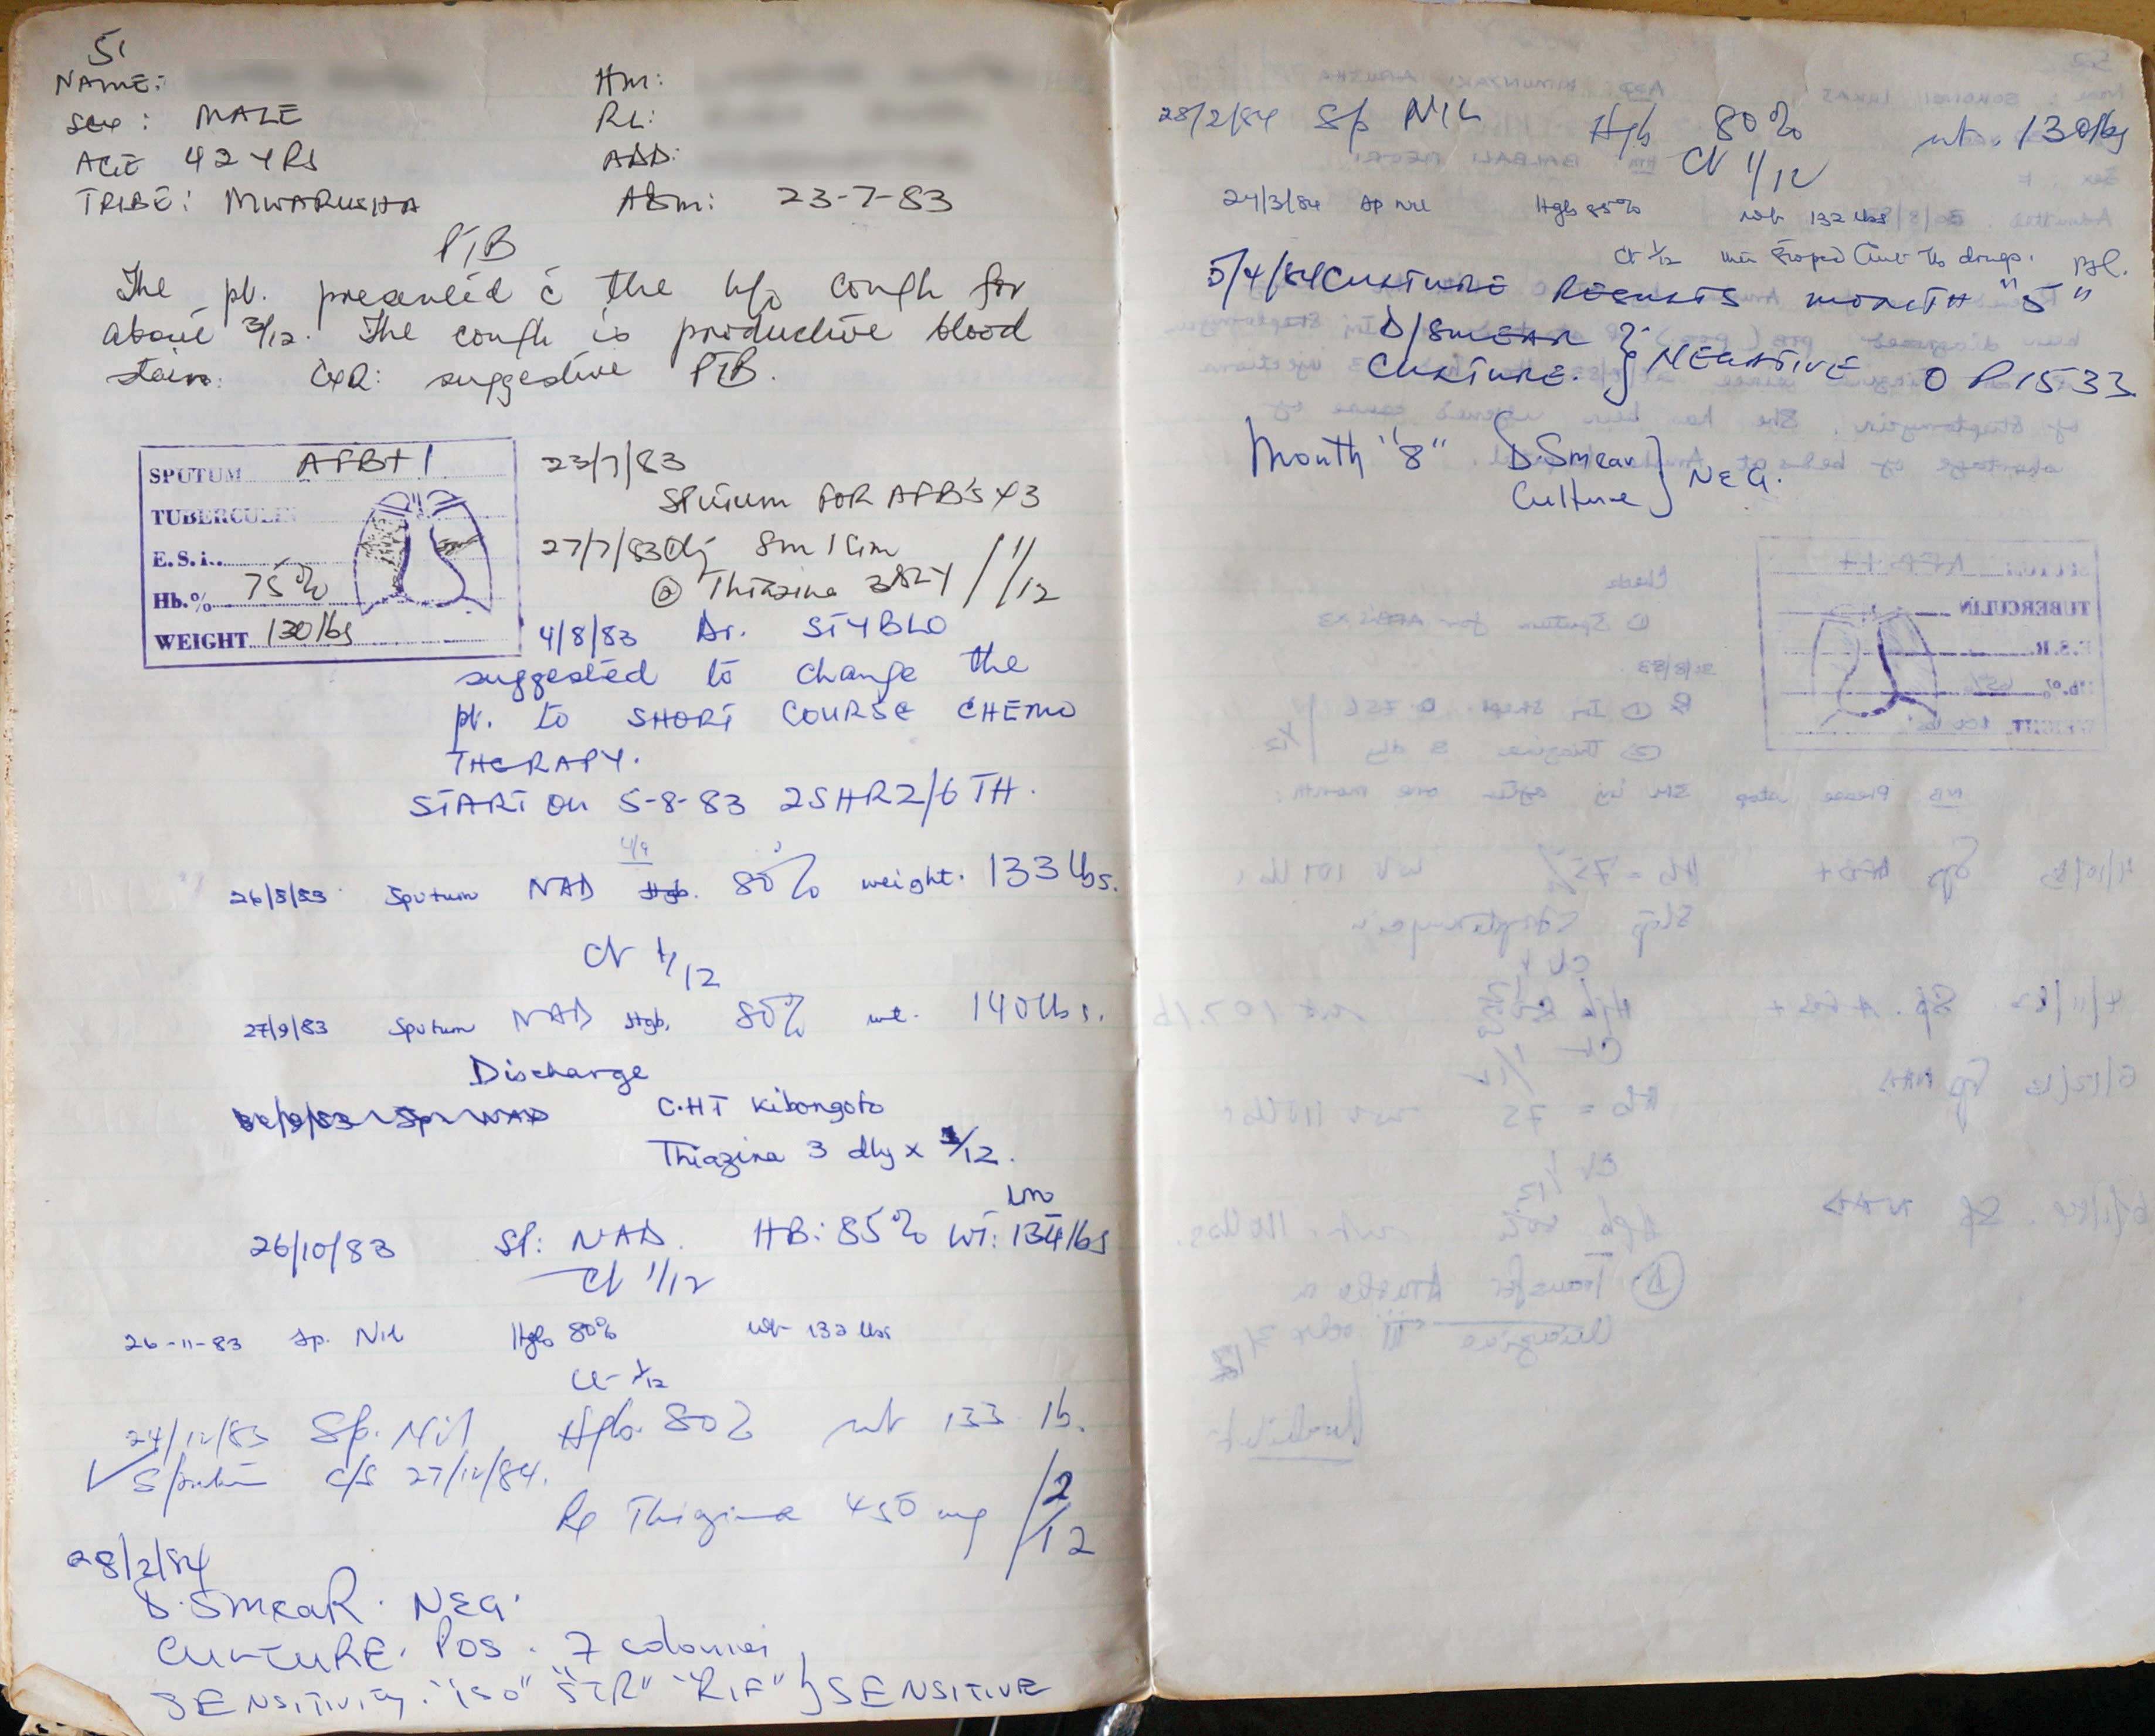 51
NAME:
Sex: MALE
AGE 42 YRS
TRIBE: MWARUSHA
Hm:
RL:
ADD:
ADm: 23-7-83
PTB
The pt. presented c̄ the h/o cough for
about 3/12. The cough is productive blood
stain. CXR: suggestive PTB.
SPUTUM AFB+1
TUBERCULIN
E.S.i.
Hb.% 75%
WEIGHT 130 lbs
23/7/83
SPUTUM FOR AFB'S X3
27/7/83 Inj Sm 1 Gm
Thiazina 3 DLY 1/12
4/8/83 Dr. STYBLO
suggested to change the
pt. to SHORT COURSE CHEMO
THERAPY.
START ON 5-8-83 2SHRZ/6 TH.
4/9
26/8/83 Sputum NAD Hgb. 80% weight. 133 lbs.
Ct 1/12
27/9/83 Sputum NAD Hgb. 80% wt. 140 lbs.
Discharge
C.HT Kibongoto
Thiazina 3 dly x /12.
26/10/83 SP: NAD. HB: 85% WT: 134 lbs
Ct 1/12
26-11-83 Sp. Nil Hgb 80% wt 132 lbs
Ct 1/12
24/12/83 Sp. Nil Hgb. 80% wt 133 lb.
✓ Sputum C/S 27/12/84.
Rx Thiazina 450 mg 2/12
28/2/84
D. SMEAR. NEG.
CULTURE. POS. 7 colonies
SENSITIVITY. "ISO" "STR" "RIF" } SENSITIVE
28/2/84 Sp NIL Hgb 80% wt. 130 lbs
Ct 1/12
24/3/84 Sp Nil Hgb 85% wt 132 lbs
Ct 1/12 drugs.
5/4/84 CULTURE RESULTS MONTH "5"
D/SMEAR
CULTURE. } NEGATIVE O P1533
Month "8" D.Smear
Culture } NEG.